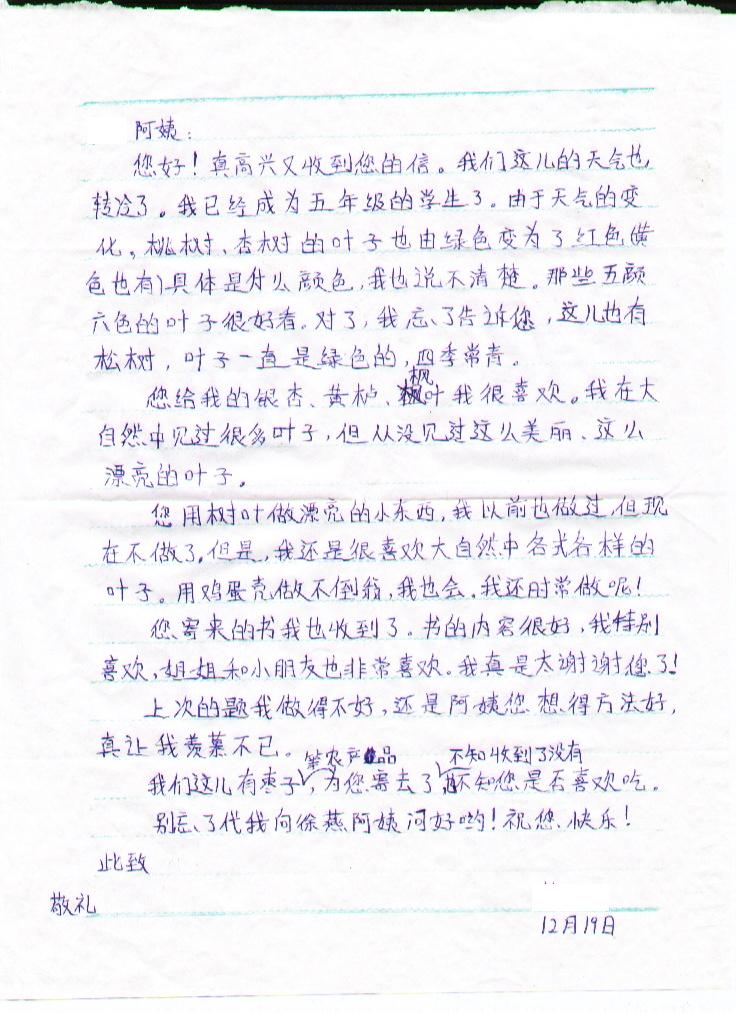 阿姨：
您好！真高兴又收到您的信。我们这儿的天气也
转冷了。我已经成为五年级的学生了。由于天气的变
化，桃树、杏树的叶子也由绿色变为了红色（黄
色也有）具体是什么颜色，我也说不清楚。那些五颜
六色的叶子很好看。对了，我忘了告诉您，这儿也有
松树，叶子一直是绿色的，四季常青。
您给我的银杏、黄栌、枫叶我很喜欢。我在大
自然中见过很多叶子，但从没见过这么美丽、这么
漂亮的叶子。
您用树叶做漂亮的小东西，我以前也做过，但现
在不做了。但是，我还是很喜欢大自然中各式各样的
叶子。用鸡蛋壳做不倒翁，我也会，我还时常做呢！
您寄来的书我也收到了。书的内容很好，我特别
喜欢，姐姐和小朋友也非常喜欢。我真是太谢谢您了！
上次的题我做得不好，还是阿姨您想得方法好，
真让我羡慕不已。
等农产品 不知收到了没有
我们这儿有枣子，为您寄去了，不知您是否喜欢吃。
别忘了代我向徐燕阿姨问好哟！祝您快乐！
此致
敬礼
12月19日